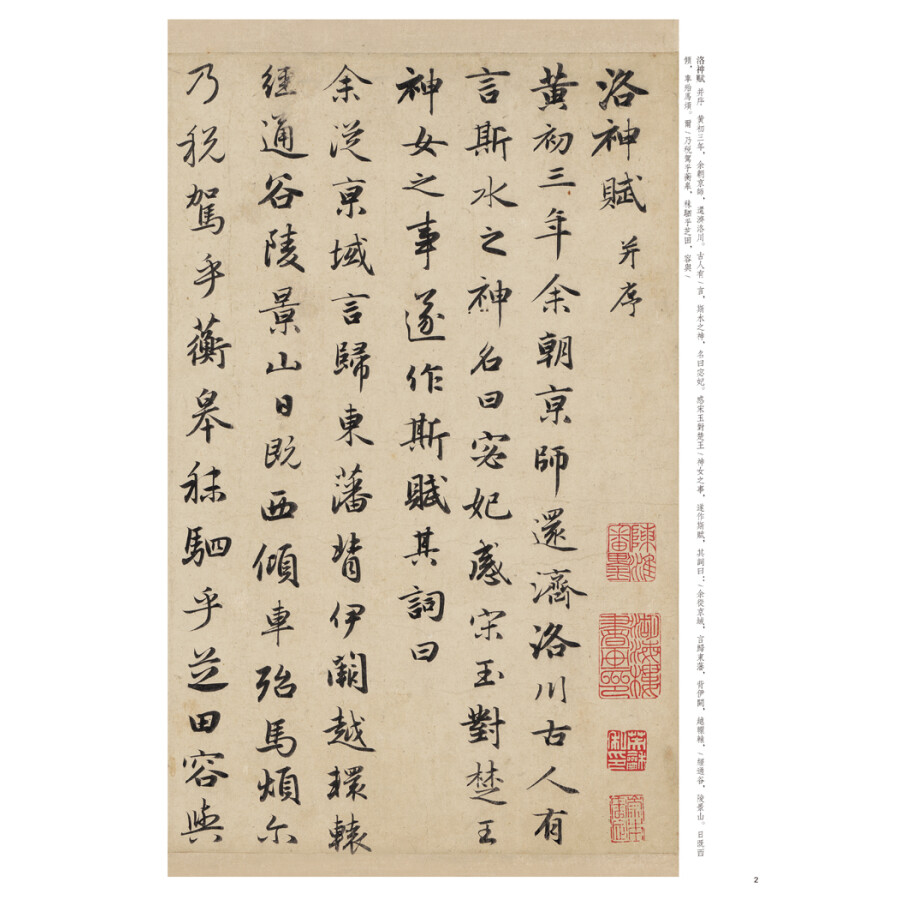 洛神賦 并序 黄初三年，余朝京師，還濟洛川。古人有/言，斯水之神，名曰宓妃。感宋玉對楚王/神女之事，遂作斯賦，其詞曰：/余從京域，言歸東藩，背伊闕，越轘轅，/經通谷，陵景山。日既西
傾，車殆馬煩。爾/乃税駕乎蘅皋，秣駟乎芝田，容與/
洛神賦 并序
黄初三年余朝京師還濟洛川古人有
言斯水之神名曰宓妃感宋玉對楚王
神女之事遂作斯賦其詞曰
余從京域言歸東藩背伊闕越轘轅
經通谷陵景山日既西傾車殆馬煩尔
乃税駕乎蘅皋秣駟乎芝田容與
2